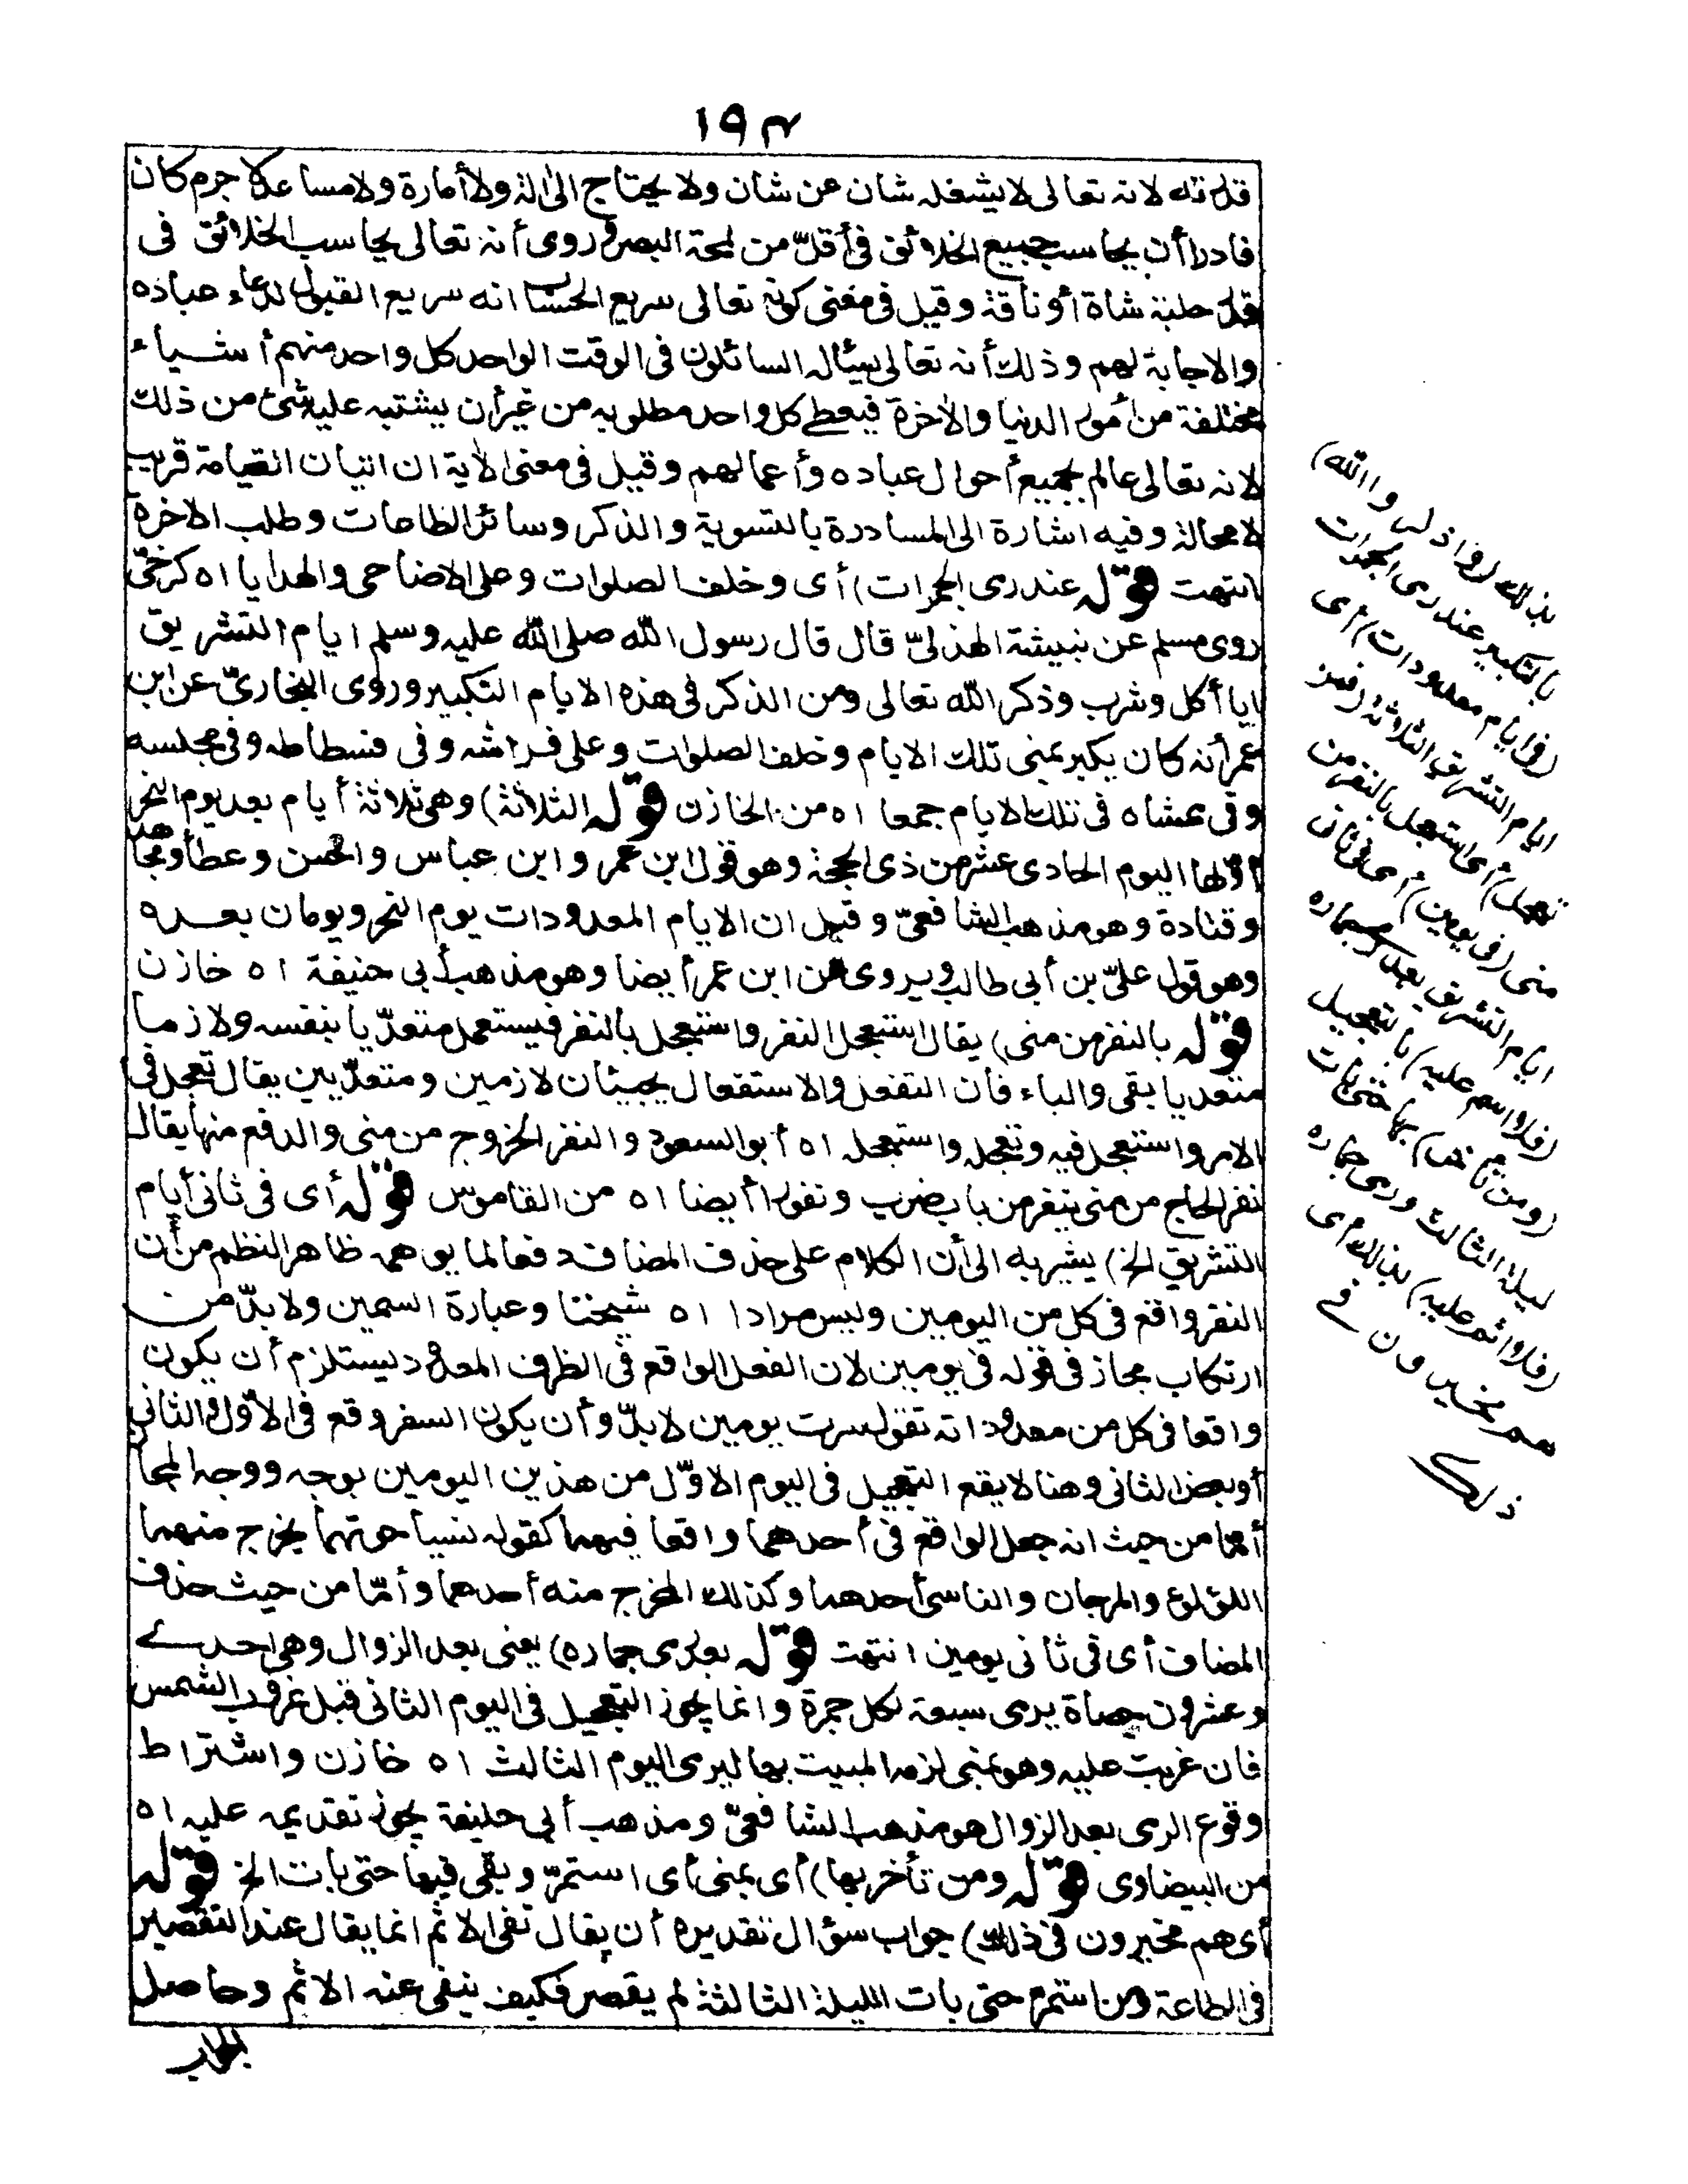 ١٩٣
قدرته لانه تعالى لا يشغله شان عن شان ولا يحتاج الى الة ولا أمارة ولا مساعد لا جرم كان
قادرا أن يحاسب جميع الخلائق فى أقلّ من لمحة البصر وروى أنه تعالى يحاسب الخلائق فى
قدر حلبة شاة أو ناقة وقيل فى معنى كونه تعالى سريع الحساب انه سريع القبول لدعاء عباده
والاجابة لهم وذلك أنه تعالى يسئاله السائلون فى الوقت الواحد كل واحد منهم أشياء
مختلفة من أمور الدنيا والاخرة فيعطى كل واحد مطلوبه من غير أن يشتبه عليه شئ من ذلك
لانه تعالى عالم بجميع أحوال عباده وأعمالهم وقيل فى معنى الاية ان اتيان القيامة قريب
لا محالة وفيه اشارة الى المسادرة بالتسوية والذكر وسائر الطاعات وطلب الاخرة
انتهت قوله عند رمى الجمرات) أى وخلف الصلوات وعلى الاضاحى والهدايا اه كرخىّ
روى مسلم عن نبيشة الهذلىّ قال قال رسول الله صلى الله عليه وسلم ايام التشريق
ايا أكل وشرب وذكر الله تعالى ومن الذكر فى هذه الايام التكبير وروى البخارىّ عن ابن
عمر أنه كان يكبر بمنى تلك الايام وخلف الصلوات وعلى فراشه وفى فسطاطه وفى مجلسه
وفى ممشاه فى تلك الايام جمعا اه من الخازن قوله الثلاثة) وهى ثلاثة أيام بعد يوم النحر
أوّلها اليوم الحادى عشر من ذى الحجة وهو قول ابن عمر وابن عباس والحسن وعطاء ومجاهد
وقتادة وهو مذهب الشافعىّ وقيل ان الايام المعدودات يوم النحر ويومان بعده
وهو قول علىّ بن أبى طالب ويروى عن ابن عمر أيضا وهو مذهب أبى حنيفة اه خازن
قوله بالنفر من منى) يقال استعجل النفر واستعجل بالنفر فيستعمل متعدّيا بنفسه ولازما
متعديا بفى والباء فان التفعل والاستفعال يجيئان لازمين ومتعدّيين يقال تعجل فى
الامر واستعجل فيه وتعجله واستعجله اه أبو السعود والنفر الخروج من منى والدفع منها يقال
نفر الحاج من منى ينفر من باب ضرب ونفورا أيضا اه من القاموس قوله أى فى ثانى أيام
التشريق الخ) يشير به الى أن الكلام على حذف المضاف دفعا لما يوهمه ظاهر النظم من أن
النفر واقع فى كل من اليومين وليس مرادا اه شيخنا وعبارة السمين ولا بدّ من
ارتكاب مجاز فى قوله فى يومين لان الفعل الواقع فى الظرف المعدود يستلزم أن يكون
واقعا فى كل من معدوداته تقول سرت يومين لا بدّ وأن يكون السفر وقع فى الاوّل والثانى
أو بعض الثانى وهنا لا يقع التعجيل فى اليوم الاوّل من هذين اليومين بوجه ووجه المجاز
أما من حيث انه جعل الواقع فى أحدهما واقعا فيهما كقوله نسيا حوتهما يخرج منهما
اللؤلؤ والمرجان والناسى أحدهما وكذلك المخرج منه أحدهما وأمّا من حيث حذف
المضاف أى فى ثانى يومين انتهت قوله بعد رمى جماره) يعنى بعد الزوال وهى احدى
وعشرون حصاة يرمى سبعة لكل جمرة وانما يجوز التعجيل فى اليوم الثانى قبل غروب الشمس
فان غربت عليه وهو بمنى لزمه المبيت بها ليرمى اليوم الثالث اه خازن واشتراط
وقوع الرمى بعد الزوال هو مذهب الشافعىّ ومذهب أبى حنيفة يجوز تقديمه عليه اه
من البيضاوى قوله ومن تأخر بها) أى بمنى أى استمرّ وبقى فيها حتى بات الخ قوله
أى هم مخيرون فى ذلك) جواب سؤال تقديره أن يقال نفى الاثم انما يقال عند التقصير
فى الطاعة ومن استمرّ حتى بات الليلة الثالثة لم يقصر فكيف ينفى عنه الاثم وحاصل
الجواب
بذلك (واذكروا الله)
بالتكبير عند رمى الجمرات
(فى ايام معدودات) أى
ايام التشريق الثلاثة (فمن
تعجل) أى استعجل بالنفر من
منى (فى يومين) أى فى ثانى
ايام التشريق بعد رمى جماره
(فلا اثم عليه) بالتعجيل
(ومن تأخر) بها حتى بات
ليلة الثالث ورمى جماره
(فلا اثم عليه) بذلك أى
هم مخيرون فى
ذلك